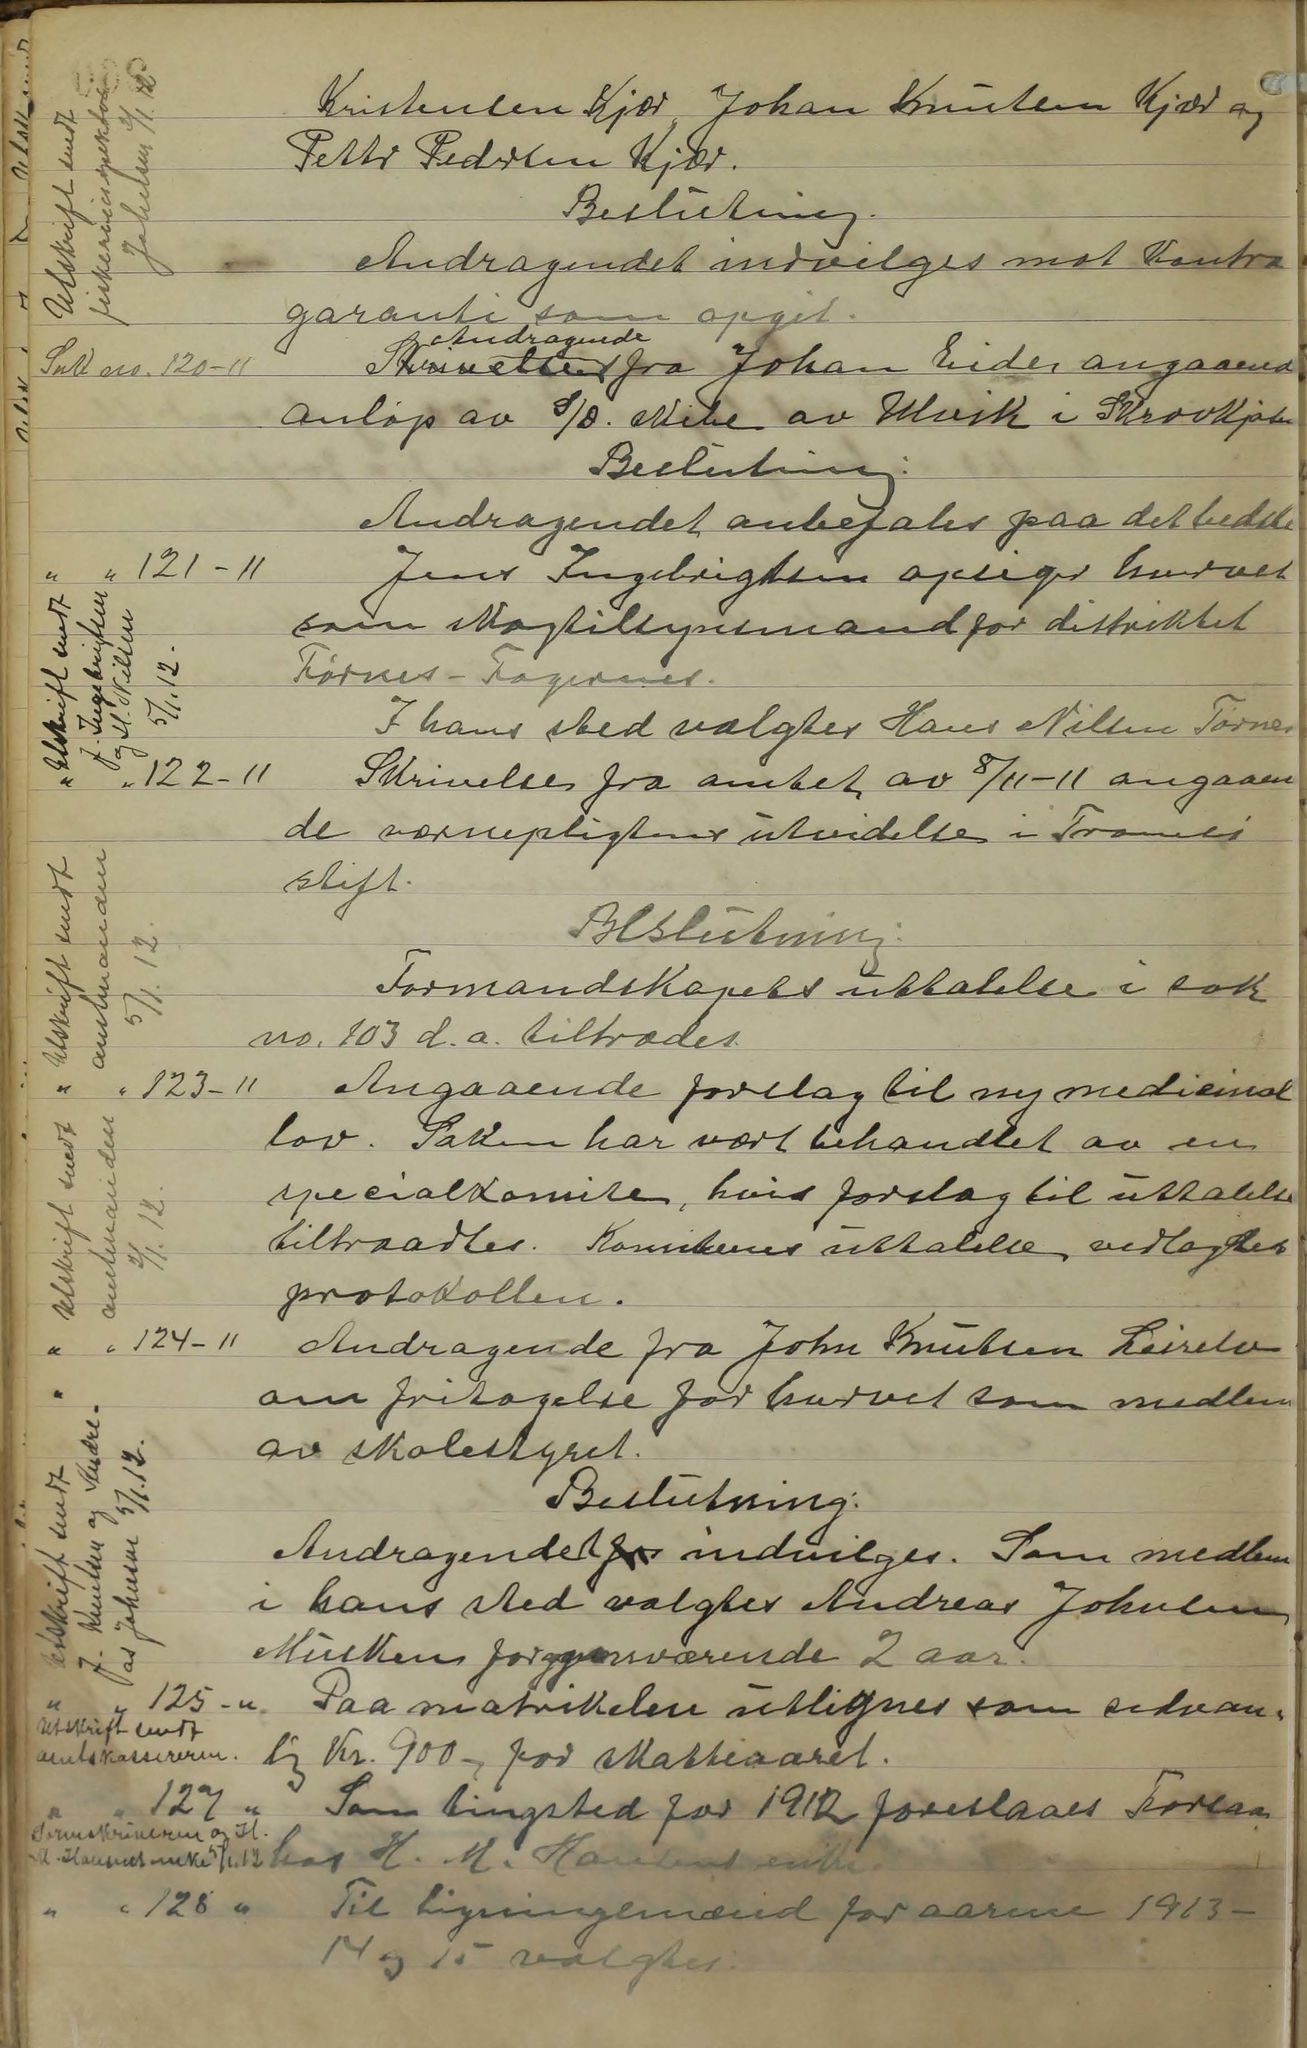 Kristensen Kjær, Johan Knutsen Kjær og
Petter Pedersen Kjær.
Beslutning.
Andragendet indvilges mot Kontra
garanti som opgit.
Utskrift sendt
fiskeriinspektøren
Johnsen 5/1.12
Sak no. 120-11
Andragende
Skrivelse fra Johan Eide, angaaende
anløp av D/S. av Ulvik i Skrovkjosen
Beslutning:
Andragendet anbefales paa det bedste
" " 121-11
Jens Ingebrigtsen opsiger hvervet
som skogtilsynsmand for distriktet
Tørnes - Fagernes.
I hans sted valgtes Hans Nilsen Tørnes
Utskrift sendt
J. Ingebrigtsen
og H. Nilsen
5/1.12.
" " 122-11
Skrivelse fra amtet av 8/11-11 angaaen
de værnepligtens utvidelse i Tromsø
stift.
Beslutning:
Formandskapets uttalelse i sak
no. 103 d.a. tiltrædes.
Utskrift sendt
amtmanden
5/1.12.
" " 123-11
Angaaende forslag til ny medicinal
lov. Saken har vært behandlet av en
specialkomite, hvis forslag til uttalelse
tiltraadtes. Komiteens uttalelse vedlagdes
protokollen.
Utskrift sendt
amtmanden
5/1.12.
" " 124-11
Andragende fra John Knutsen Leirelv
om fritagelse for hvervet som medlem
av skolestyret.
Beslutning:
Andragendet for indvilges. Som medlem
i hans sted valgtes Andreas Johnsen
Musken for gjenværende 2 aar.
Utskrift sendt
J. Knutsen og Andre-
as Johnsen 5/1.12.
" " 125-"
Paa matrikelen utlignes som sedvan-
lig Kr. 900-, for skatteaaret.
Utskrift sendt
amtskassereren.
" " 127 "
Som tingsted for 1912 foreslaaes Korsaa
hos H. M. Hansens enke.
Sorenskriveren og H.
M. Hansens enke 5/1.12
" " 128 "
Til ligningsmænd for aarene 1913-
14 og 15 valgtes: